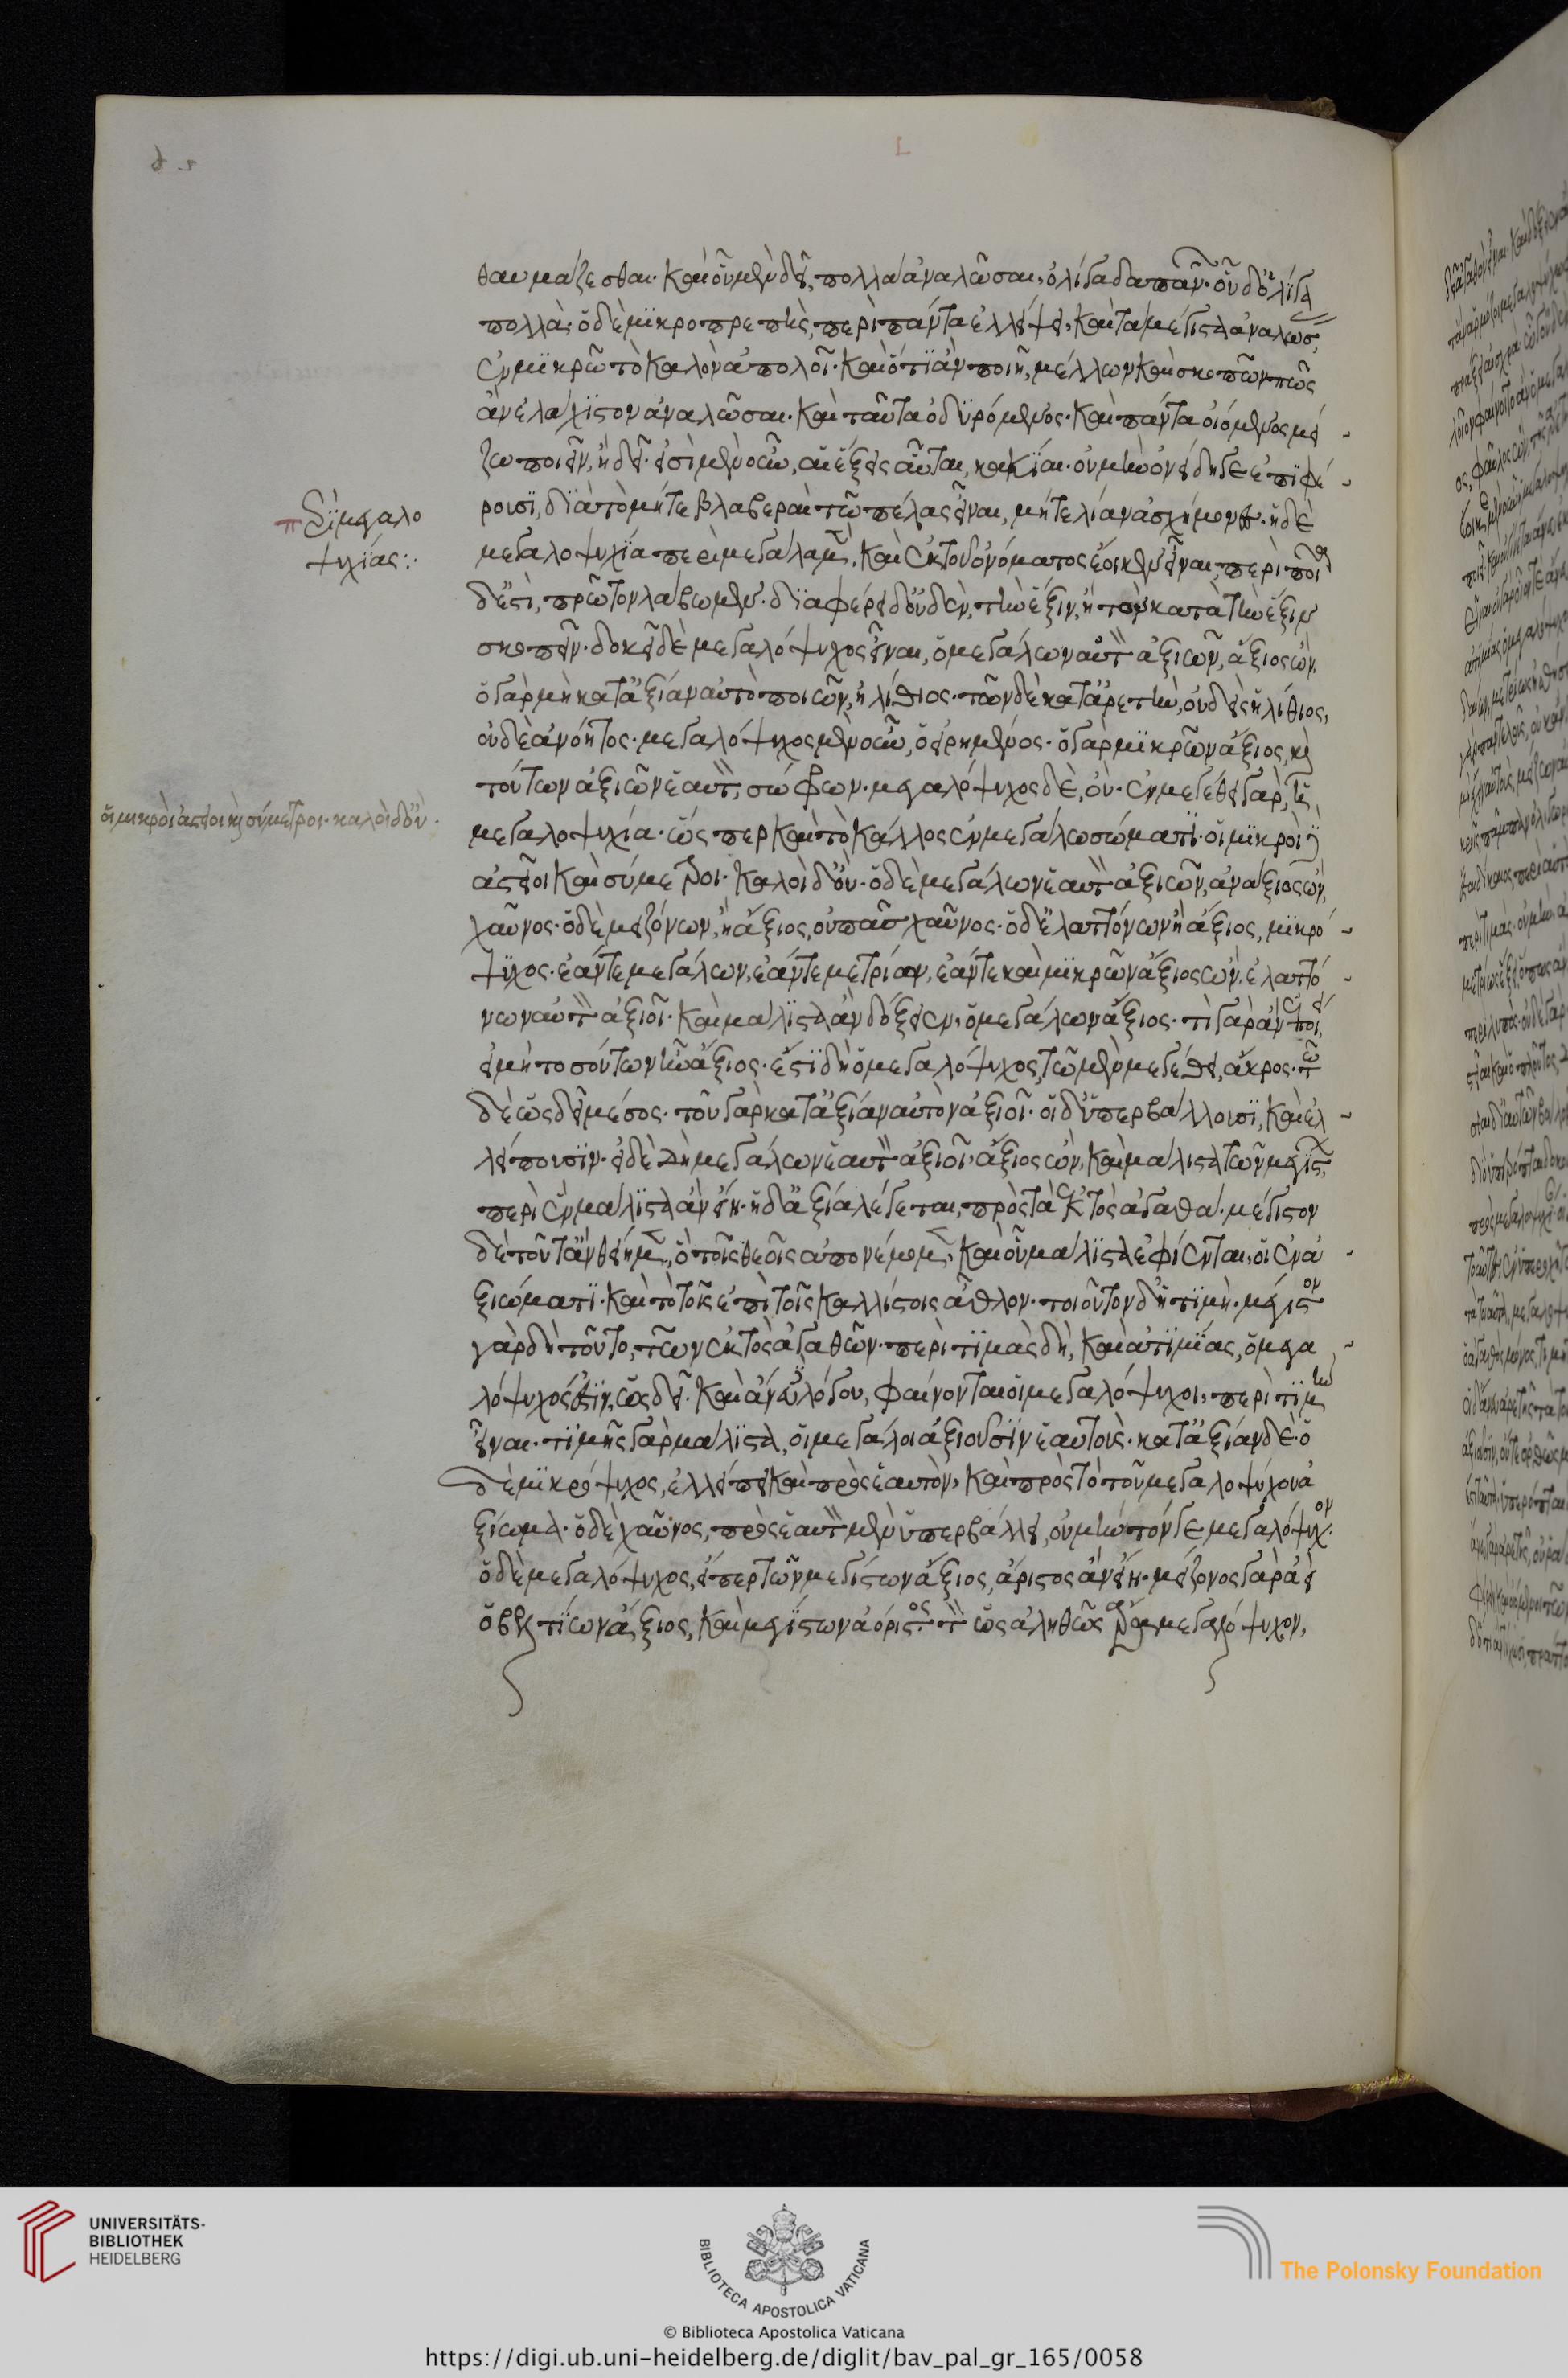 θαυμάζεσθαι· καὶ οὗ μὲν δεῖ, πολλὰ ἀναλῶσαι, ὀλίγα δαπανῶν· οὗ δ' ὀλίγα
πολλά· ὁ δὲ μικροπρεπὴς, περὶ πάντα ἐλλείψει, καὶ τὰ μέγιστα ἀναλώσας,
ἐν μικρῷ τὸ καλὸν ἀπολεῖ· καὶ ὅτι ἂν ποιῇ, μέλλων καὶ σκοπῶν πῶς
ἂν ἐλάχιστον ἀναλῶσαι· καὶ ταῦτα ὀδυρόμενος· καὶ πάντα οἰόμενος μεί-
ζω ποιεῖν, ἢ δεῖ· εἰσὶ μὲν οὖν, αἱ ἕξεις αὗται, κακίαι· οὐ μὴν ὀνείδη γε ἐπιφέ-
ρουσι, διὰ τὸ μήτε βλαβεραὶ τῷ πέλας εἶναι, μήτε λίαν ἀσχήμονες· ἡ δὲ
μεγαλοψυχία περὶ μεγάλα μὲν, καὶ ἐκ τοῦ ὀνόματος ἔοικεν εἶναι, περὶ ποῖα
δ' ἐστὶ, πρῶτον λάβωμεν· διαφέρει δ' οὐδὲν, τὴν ἕξιν, ἢ τὸν κατὰ τὴν ἕξιν
σκοπεῖν· δοκεῖ δὲ μεγαλόψυχος εἶναι, ὁ μεγάλων αὑτὸν ἀξιῶν, ἄξιος ὤν·
ὁ γὰρ μὴ κατ' ἀξίαν αὐτὸ ποιῶν, ἠλίθιος· τῶν δὲ κατ' ἀρετὴν, οὐδεὶς ἠλίθιος,
οὐδὲ ἀνόητος· μεγαλόψυχος μὲν οὖν, ὁ εἰρημένος· ὁ γὰρ μικρῶν ἄξιος, καὶ
τούτων ἀξιῶν ἑαυτὸν, σώφρων· μεγαλόψυχος δὲ, οὔ· ἐν μεγέθει γὰρ, ἡ
μεγαλοψυχία· ὥσπερ καὶ τὸ κάλλος ἐν μεγάλῳ σώματι· οἱ μικροὶ δ'
ἀστεῖοι καὶ σύμμετροι· καλοὶ δ' οὔ· ὁ δὲ μεγάλων ἑαυτὸν ἀξιῶν, ἀνάξιος ὤν,
χαῦνος· ὁ δὲ μειζόνων, ἢ ἄξιος, οὐ πᾶς χαῦνος· ὁ δ' ἐλαττόνων ἢ ἄξιος, μικρό-
ψυχος· ἐάντε μεγάλων, ἐάντε μετρίων, ἐάντε καὶ μικρῶν ἄξιος ὢν, ἐλαττό-
νων αὑτὸν ἀξιοῖ· καὶ μάλιστα ἂν δόξειεν, ὁ μεγάλων ἄξιος· τί γὰρ ἂν ἐποίει,
εἰ μὴ τοσούτων ἦν ἄξιος· ἔστι δὴ ὁ μεγαλόψυχος, τῷ μὲν μεγέθει, ἄκρος· τῷ
δὲ ὡς δεῖ μέσος· τοῦ γὰρ κατ' ἀξίαν αὐτὸν ἀξιοῖ· οἱ δ' ὑπερβάλλουσι, καὶ ἐλ-
λείπουσιν· εἰ δὲ δὴ μεγάλων ἑαυτὸν ἀξιοῖ ἄξιος ὢν, καὶ μάλιστα τῶν μεγίστων,
περὶ ἓν μάλιστα ἂν εἴη· ἡ δ' ἀξία λέγεται, πρὸς τὰ ἐκτὸς ἀγαθά· μέγιστον
δὲ τοῦτ' ἂν θείημεν, ὃ τοῖς θεοῖς ἀπονέμομεν, καὶ οὗ μάλιστα ἐφίενται, οἱ ἐν ἀ-
ξιώματι· καὶ τὸ τοῖς ἐπὶ τοῖς καλλίστοις ἆθλον· τοιοῦτον δ' ἡ τιμή· μέγιστον
γὰρ δὴ τοῦτο, τῶν ἐκτὸς ἀγαθῶν· περὶ τιμὰς δὴ, καὶ ἀτιμίας, ὁ μεγα-
λόψυχός ἐστιν, ὡς δεῖ· καὶ ἄνευ λόγου, φαίνονται οἱ μεγαλόψυχοι, περὶ τιμὴν
εἶναι· τιμῆς γὰρ μάλιστα, οἱ μεγάλοι ἀξιοῦσιν ἑαυτοὺς· κατ' ἀξίαν δέ· ὁ
δὲ μικρόψυχος, ἐλλείπει καὶ πρὸς ἑαυτὸν, καὶ πρὸς τὸ τοῦ μεγαλοψύχου ἀ
ξίωμα· ὁ δὲ χαῦνος, πρὸς ἑαυτὸν μὲν ὑπερβάλλει, οὐ μὴν τόν γε μεγαλόψυχον·
ὁ δὲ μεγαλόψυχος, εἴπερ τῶν μεγίστων ἄξιος, ἄριστος ἂν εἴη· μείζονος γὰρ ἀεὶ
ὁ βελτίων ἄξιος, καὶ μεγίστων ὁ ἄριστος· τὸν ὡς ἀληθῶς ἄρα μεγαλόψυχον,
Περὶ μεγαλο
ψυχίας:·
οἱ μικροὶ ἀστεῖοι καὶ σύμμετροι· καλοὶ δ' οὔ·
UNIVERSITÄTS-
BIBLIOTHEK
HEIDELBERG
BIBLIOTECA APOSTOLICA VATICANA
The Polonsky Foundation
© Biblioteca Apostolica Vaticana
https://digi.ub.uni-heidelberg.de/diglit/bav_pal_gr_165/0058